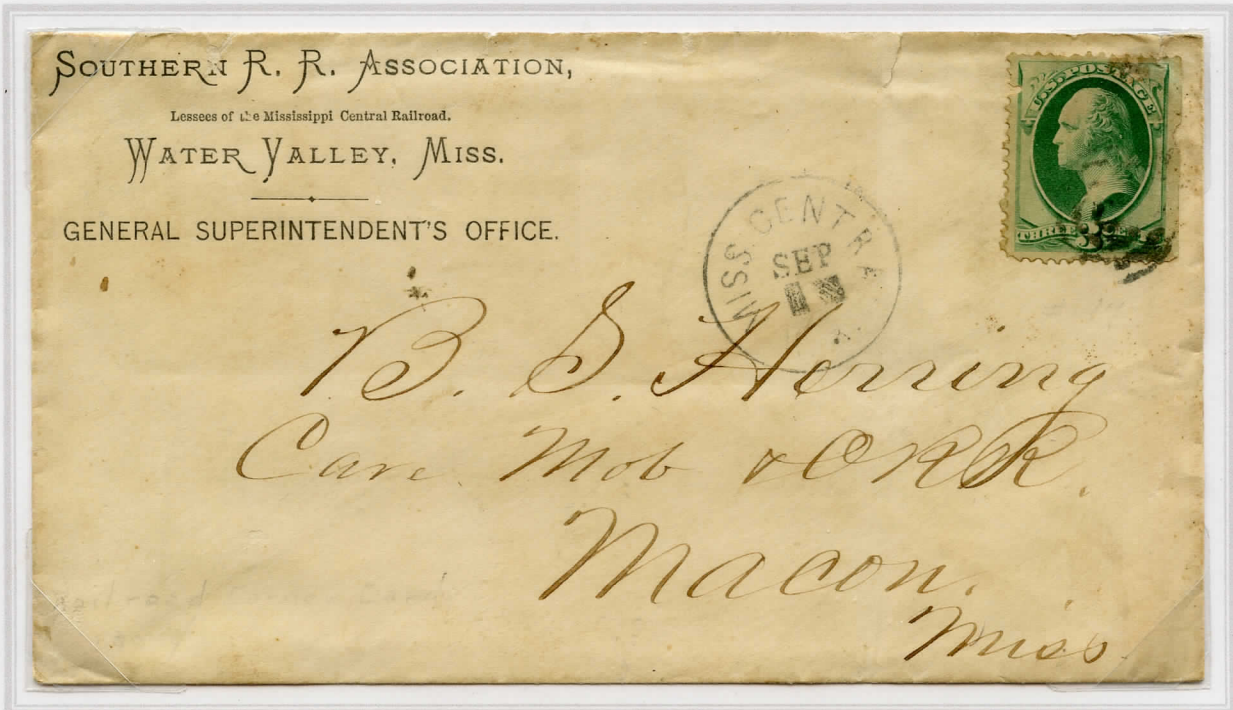 SOUTHERN R. R. ASSOCIATION,
Lessees of the Mississippi Central Railroad.
WATER VALLEY, MISS.
GENERAL SUPERINTENDENT'S OFFICE.
U.S. POSTAGE
THREE 3 CENTS
MISS CENTRA
SEP
B. S. Herring
Care Mob & O R R.
Macon.
Miss